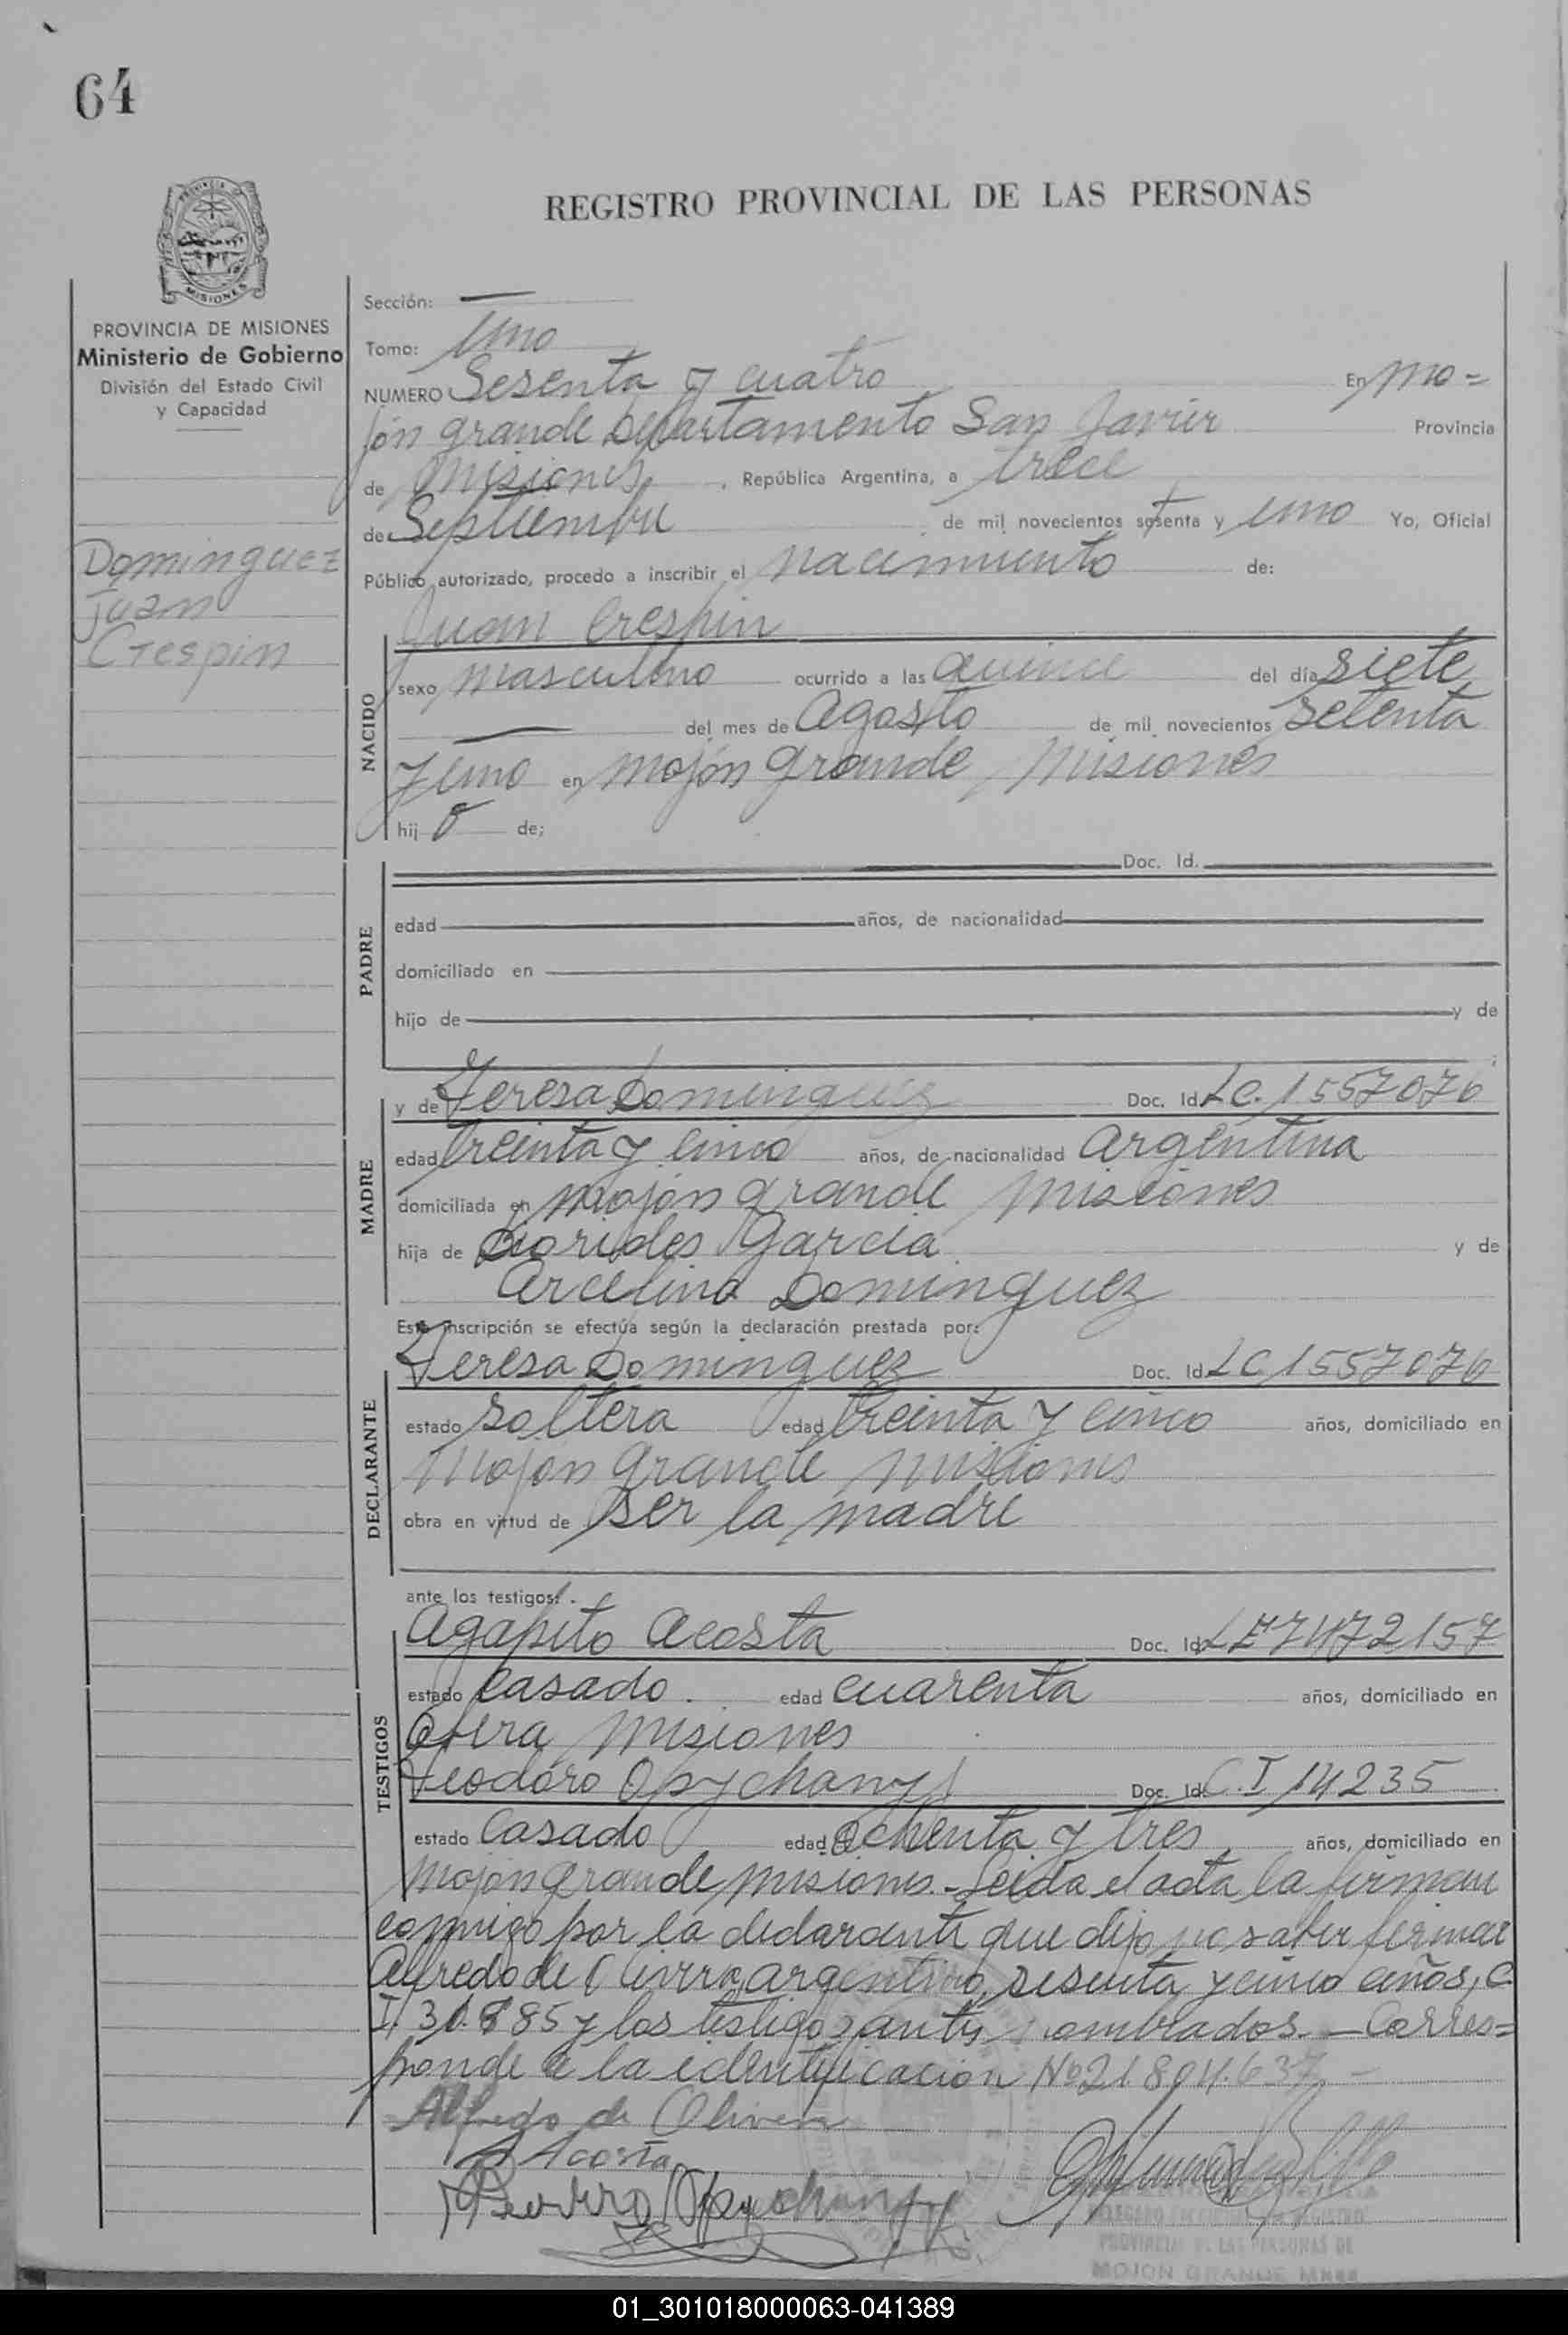 64
REGISTRO PROVINCIAL DE LAS PERSONAS
MISIONES
PROVINCIA DE MISIONES
Ministerio de Gobierno
División del Estado Civil
y Capacidad
Dominguez
Juan
Crespin
Sección: —
Tomo: Uno
NUMERO Sesenta y cuatro En Mo=
jón grande Departamento San Javier Provincia
de Misiones, República Argentina, a trece
de Septiembre de mil novecientos setenta y uno Yo, Oficial
Público autorizado, procedo a inscribir el nacimiento de:
Juan Crespin
NACIDO
sexo masculino ocurrido a las quince del día siete
— del mes de Agosto de mil novecientos setenta
y uno en Mojón grande Misiones
hijo de;
PADRE
Doc. Id.
edad años, de nacionalidad
domiciliado en
hijo de y de
;
MADRE
y de Teresa Dominguez Doc. Id LC. 1557076
edad treinta y cinco años, de nacionalidad argentina
domiciliada en Mojón grande Misiones
hija de Dorides Garcia y de
Arcelina Dominguez
Esta inscripción se efectúa según la declaración prestada por:
DECLARANTE
Teresa Dominguez Doc. Id LC 1557076
estado soltera edad treinta y cinco años, domiciliado en
Mojón grande Misiones
obra en virtud de ser la madre
ante los testigos:
TESTIGOS
Agapito Acosta Doc. Id LE 7472157
estado casado. edad cuarenta años, domiciliado en
Obera Misiones
Teodoro Opychanyj Doc. Id C.I 14235
estado casado edad ochenta y tres años, domiciliado en
Mojón grande Misiones.- Leida el acta, la firman
conmigo por la declarante que dijo no saber firmar
Alfredo de Olivera, argentino, sesenta y cinco años, C.
I. 30.885 y los testigos antes nombrados.- Corres=
ponde a la identificación Nº 21.804.637 -
Alfredo de Olivera
A Acosta
Teodoro Opychanyj
REGISTRO
PROVINCIAL DE LAS PERSONAS DE
MOJON GRANDE Mnes
01_301018000063-041389